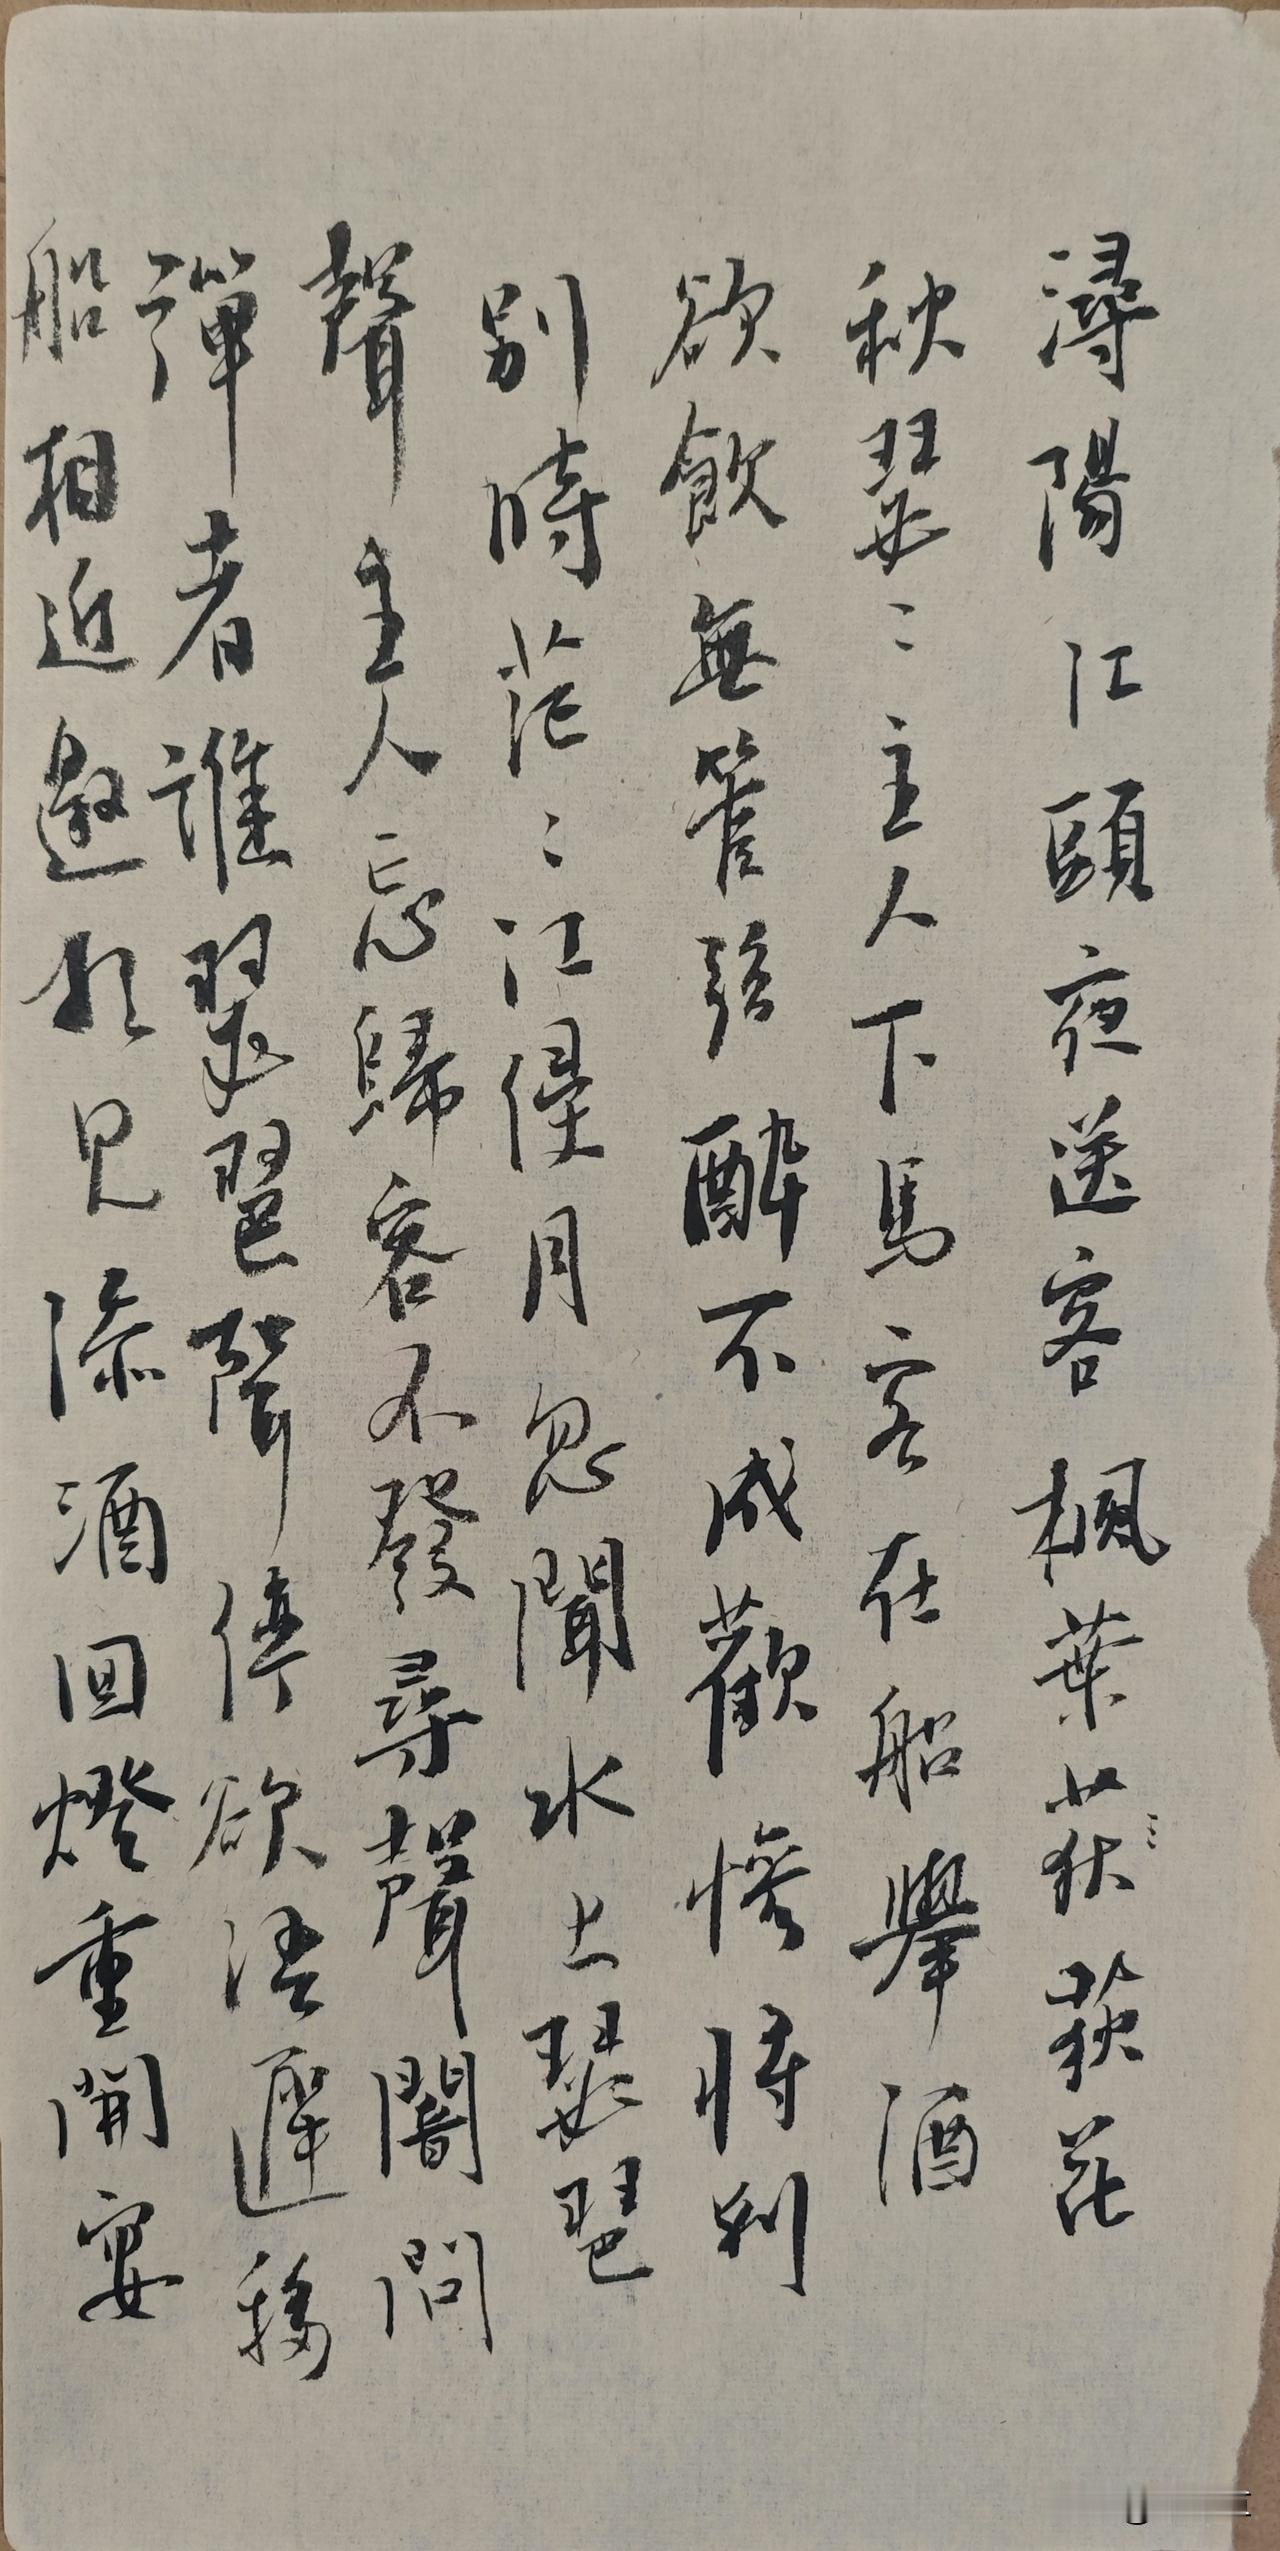 潯陽江頭夜送客楓葉荻荻花
秋瑟〻主人下馬客在船舉酒
欲飲無管弦醉不成歡慘將別
別時茫〻江侵月忽聞水上琵琶
聲主人忘歸客不發尋聲闇問
彈者誰琵琶聲停欲語遲移
船相近邀相見添酒回燈重開宴